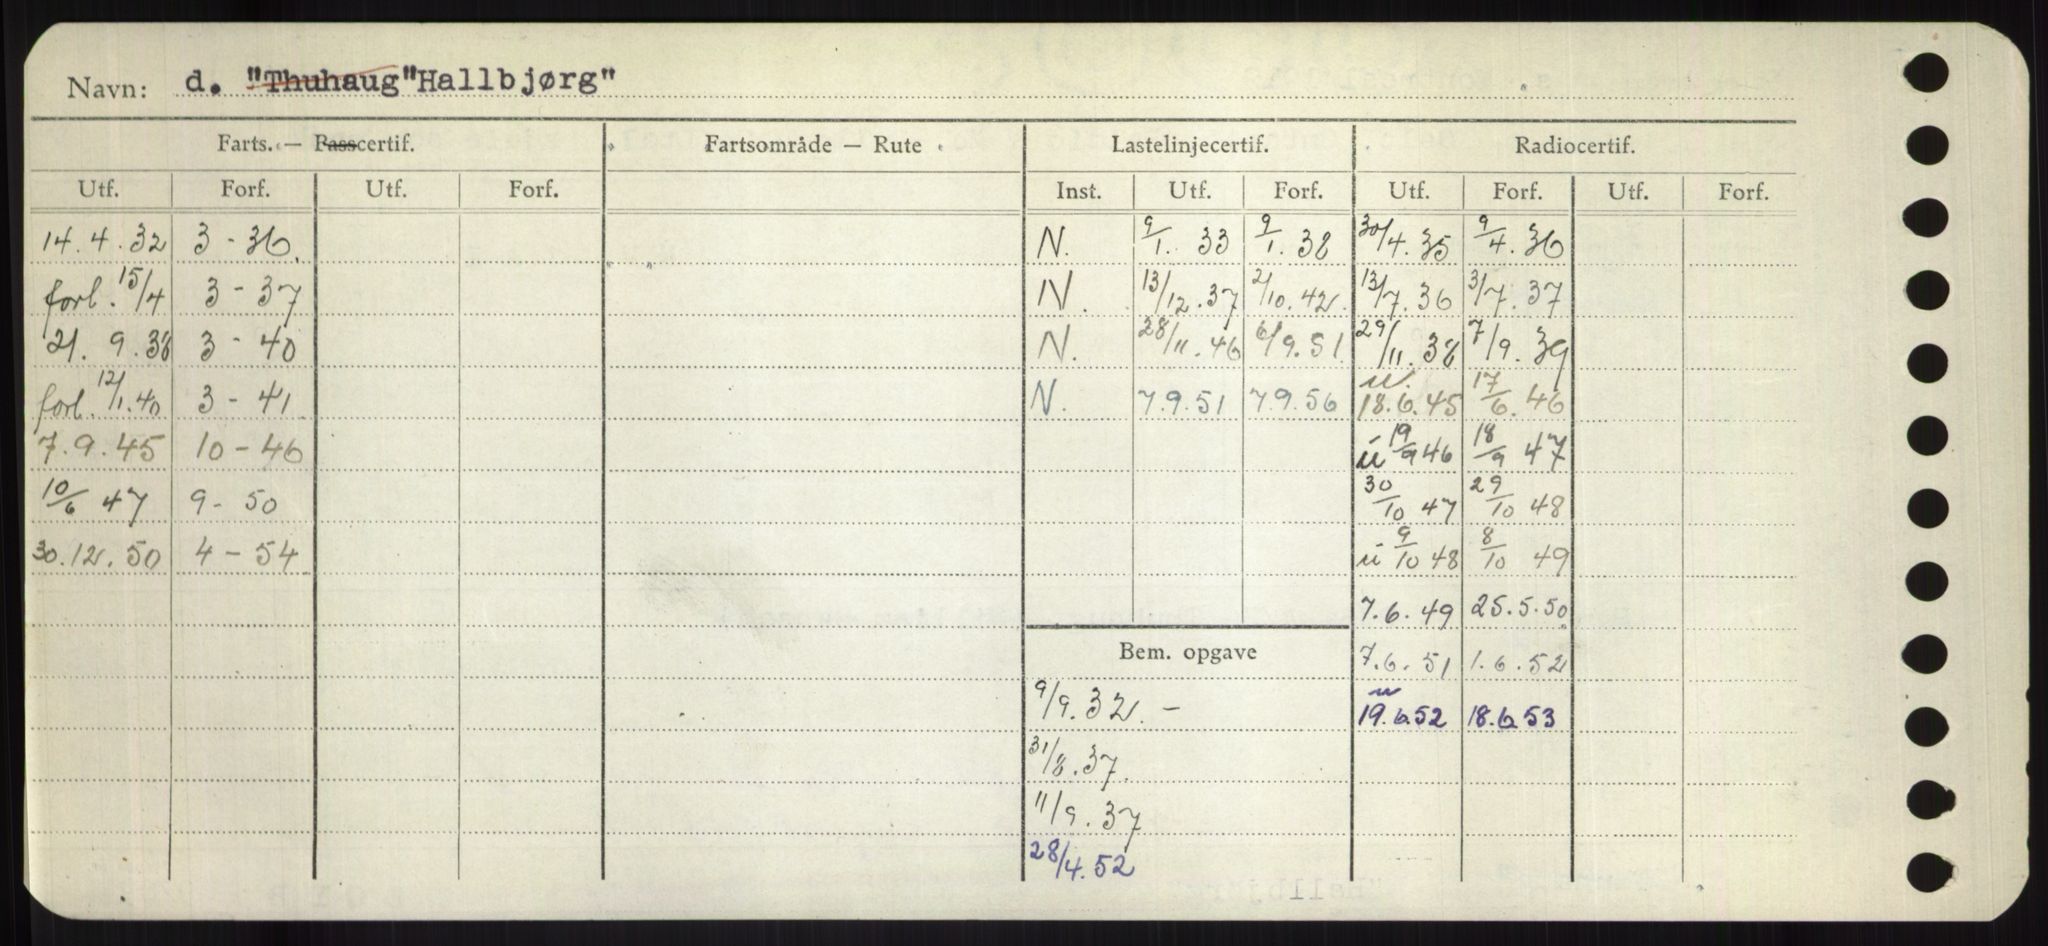 Navn: d. "Thuhaug "Hallbjørg"
Farts. — Passcertif. Fartsområde — Rute Lastelinjecertif. Radiocertif.
Utf. Forf. Utf. Forf. Inst. Utf. Forf. Utf. Forf. Utf. Forf.
14.4.32 3-36. N. 9/1. 33 9/1. 38 30/4.35 9/4.36
forl. 15/4 3-37 N. 13/12.37 2/10.42. 13/7.36 31/7.37
21.9.38 3-40 N. 28/11.46 6/9.51. 29/11.38 7/9.39
forl. 12/1.40 3-41 N. 7.9.51 7.9.56 u. 18.6.45 17/6.46
7.9.45 10-46 u 19/9 46 18/9 47
10/6 47 9-50 30/10 47 29/10 48
30.12.50 4-54 u 9/10 48 8/10 49
7.6.49 25.5.50
Bem. opgave 7.6.51 1.6.52
9/9.32. - u 19.6.52 18.6.53
31/8.37.
11/9.37
28/4.52